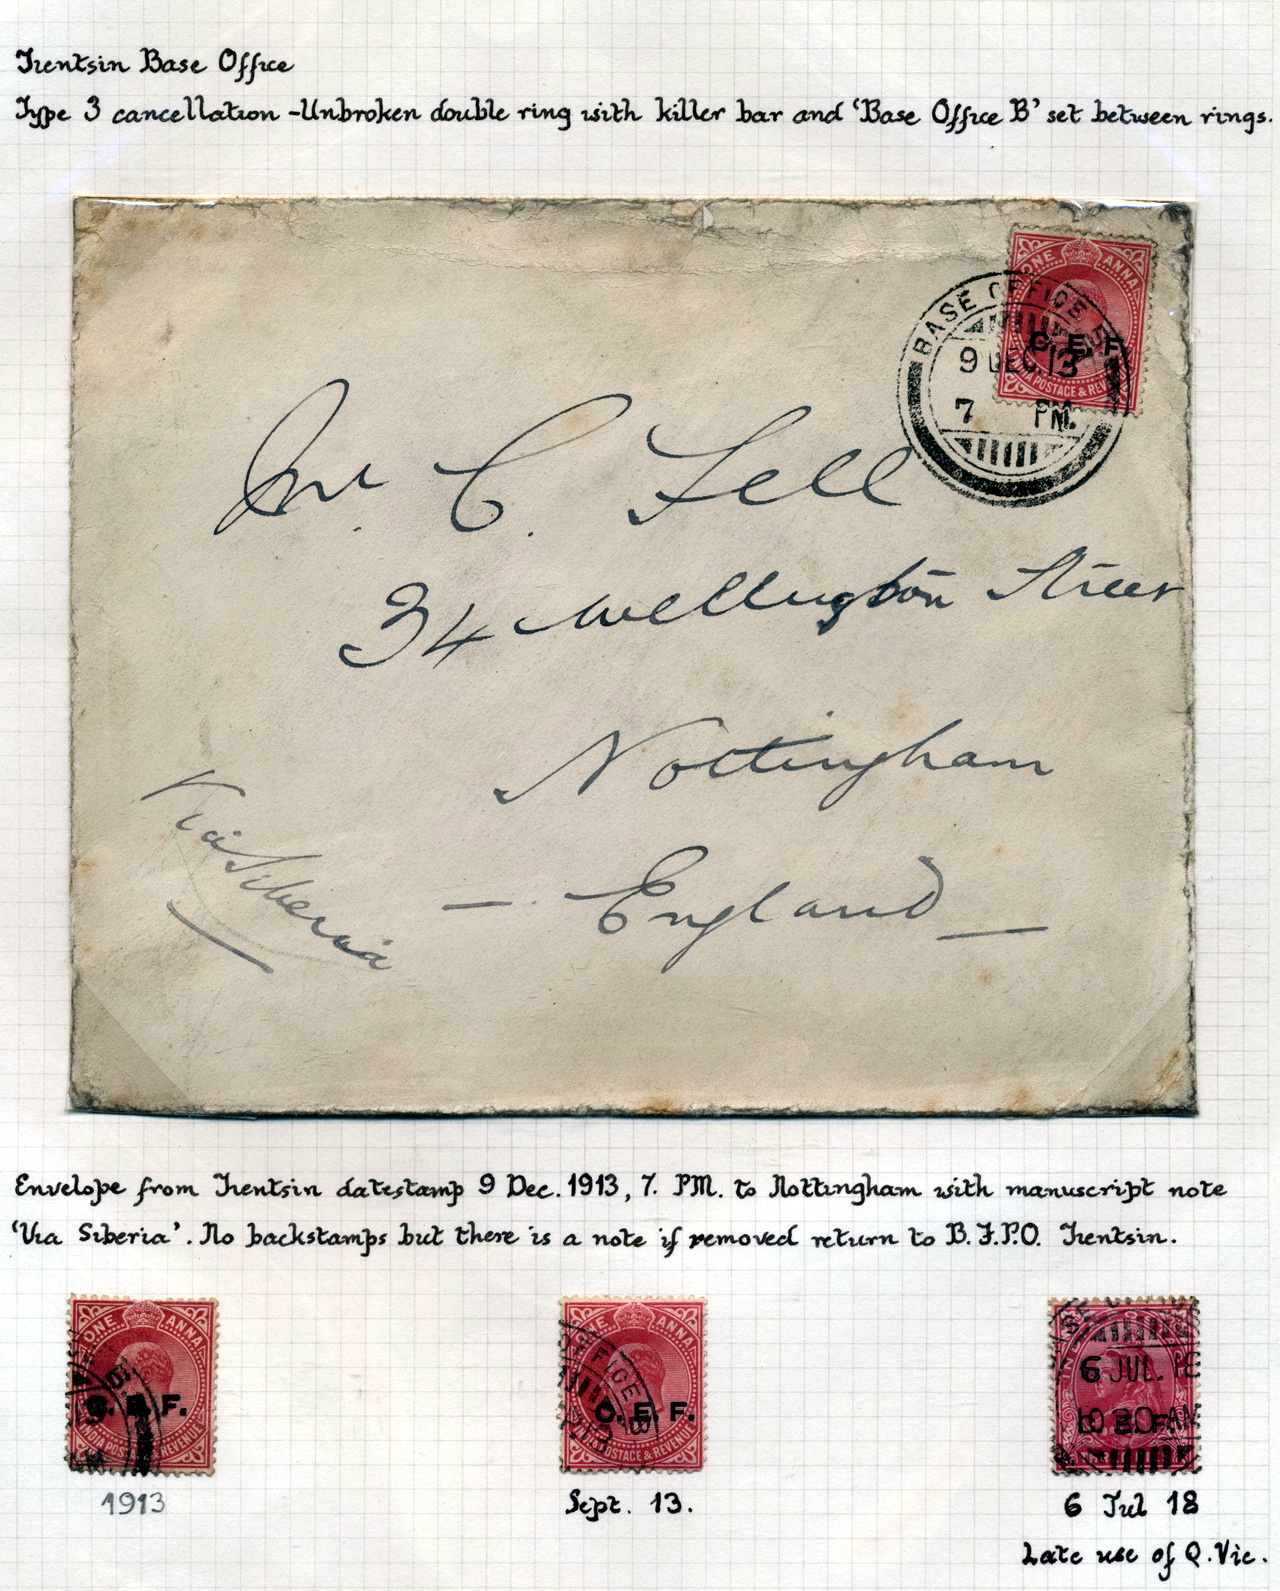 Tientsin Base Office
Type 3 cancellation - Unbroken double ring with killer bar and 'Base Office B' set between rings.
ONE ANNA
C. E. F.
INDIA POSTAGE & REVENUE
BASE OFFICE B
9 DEC. 13
7 PM.
Mr. C. Fell
34 Wellington Street
Nottingham
Via Siberia
- England -
Envelope from Tientsin datestamp 9 Dec. 1913, 7. PM. to Nottingham with manuscript note
'Via Siberia'. No backstamps but there is a note if removed return to B.F.P.O. Tientsin.
ONE ANNA
C. E. F.
INDIA POSTAGE & REVENUE
ONE ANNA
OFFICE B
C. E. F.
POSTAGE & REVENUE
6 JUL. 18
10 30 AM
C. E. F.
1913
Sept. 13.
6 Jul 18
Late use of Q. Vic.